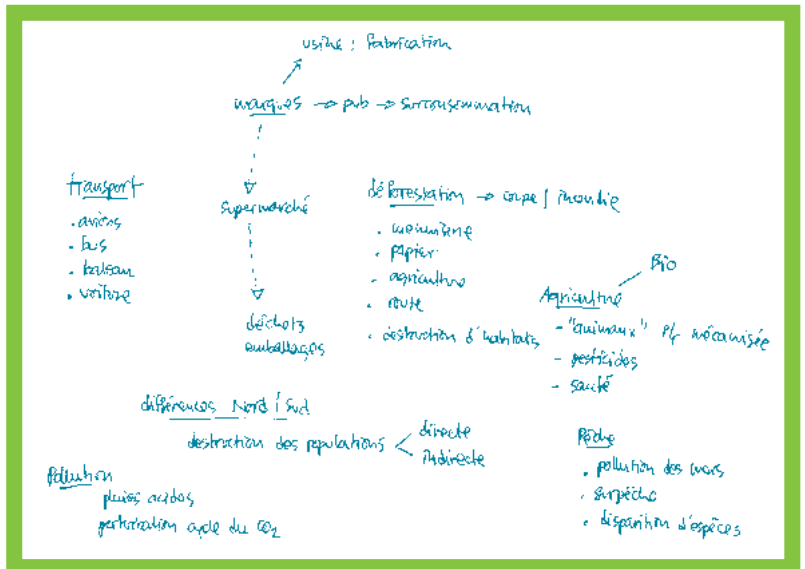 usine : fabrication
marques → pub → surconsommation
supermarché
déchets
emballages
transport
. avions
. bus
. bateau
. voiture
déforestation → coupe / incendie
. menuiserie
. papier
. agriculture
. route
. destruction d'habitats
Bio
Agriculture
- "animaux" mécanisée
- pesticides
- santé
différences Nord / Sud
destruction des populations
directe
indirecte
Pollution
pluies acides
perturbation cycle du CO2
Pêche
. pollution des mers
. surpêche
. disparition d'espèces